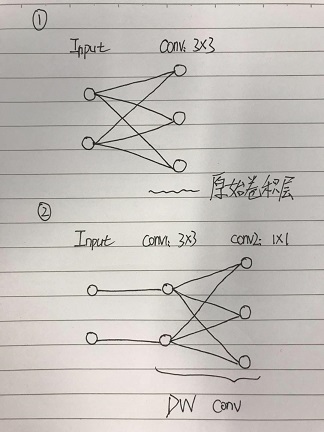 ①
Input conv: 3×3
原始卷积层
②
Input conv1: 3×3 conv2: 1×1
DW conv